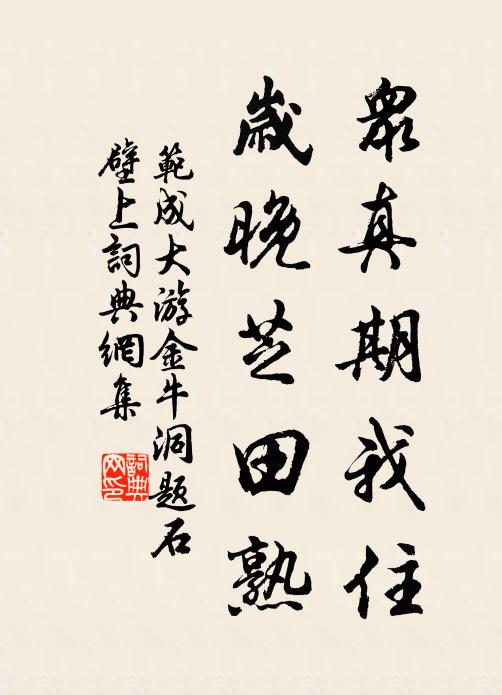 眾真期我住
歲晚芝田熟
範成大游金牛洞題石
壁上詞典網集
詞典网印